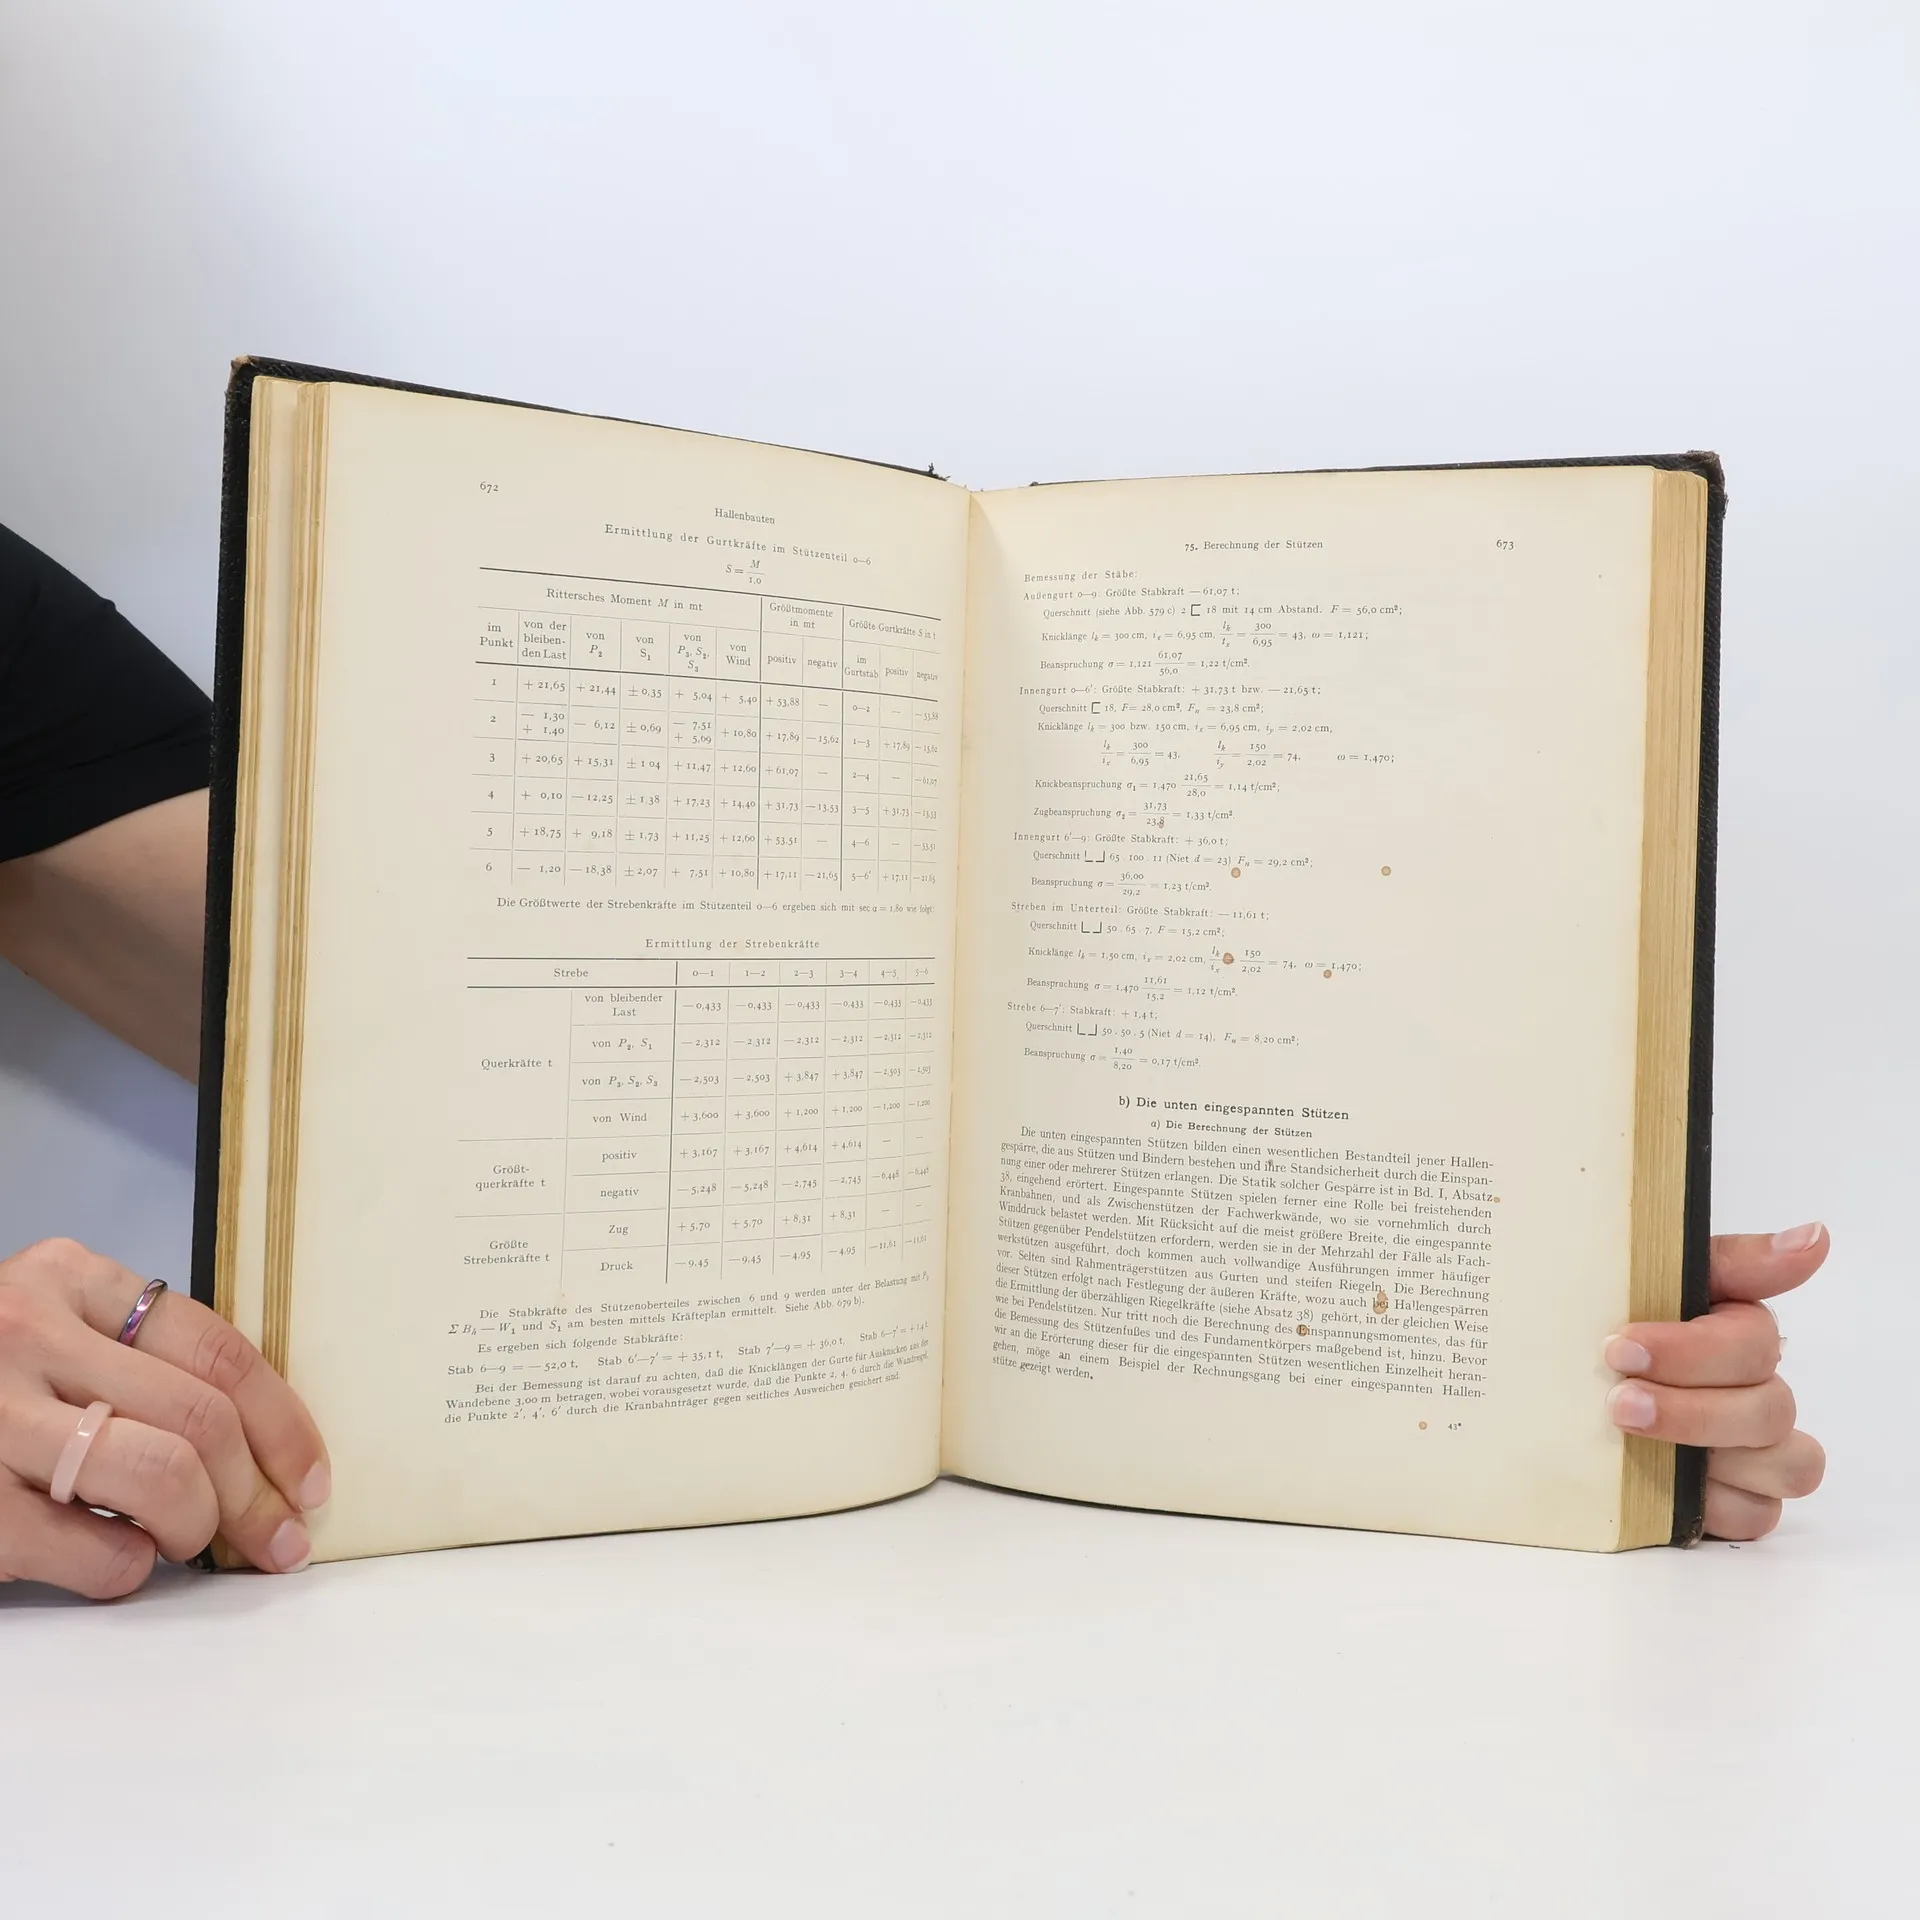 672
Hallenbauten
Ermittlung der Gurtkräfte im Stützenteil 0—6
S = M / 1,0
Rittersches Moment M in mt | Größtmomente in mt | Größte Gurtkräfte S in t
im Punkt | von der bleiben-den Last | von P2 | von S1 | von P3, S2, S3 | von Wind | positiv | negativ | im Gurtstab | positiv | negativ
1 | + 21,65 | + 21,44 | ± 0,35 | + 5,04 | + 5,40 | + 53,88 | — | 0—2 | — | — 53,88
2 | — 1,30 + 1,40 | — 6,12 | ± 0,69 | — 7,51 + 5,69 | + 10,80 | + 17,89 | — 15,62 | 1—3 | + 17,89 | — 15,62
3 | + 20,65 | + 15,31 | ± 1 04 | + 11,47 | + 12,60 | + 61,07 | — | 2—4 | — | — 61,07
4 | + 0,10 | — 12,25 | ± 1,38 | + 17,23 | + 14,40 | + 31,73 | — 13,53 | 3—5 | + 31,73 | — 13,53
5 | + 18,75 | + 9,18 | ± 1,73 | + 11,25 | + 12,60 | + 53,51 | — | 4—6 | — | — 53,51
6 | — 1,20 | — 18,38 | ± 2,07 | + 7,51 | + 10,80 | + 17,11 | — 21,65 | 5—6' | + 17,11 | — 21,65
Die Größtwerte der Strebenkräfte im Stützenteil 0—6 ergeben sich mit sec α = 1,80 wie folgt:
Ermittlung der Strebenkräfte
Strebe | 0—1 | 1—2 | 2—3 | 3—4 | 4—5 | 5—6
Querkräfte t | von bleibender Last | — 0,433 | — 0,433 | — 0,433 | — 0,433 | — 0,433 | — 0,433
von P2, S1 | — 2,312 | — 2,312 | — 2,312 | — 2,312 | — 2,312 | — 2,312
von P3, S2, S3 | — 2,503 | — 2,503 | + 3,847 | + 3,847 | — 2,503 | — 2,503
von Wind | + 3,600 | + 3,600 | + 1,200 | + 1,200 | — 1,200 | — 1,200
Größt-querkräfte t | positiv | + 3,167 | + 3,167 | + 4,614 | + 4,614 | — | —
negativ | — 5,248 | — 5,248 | — 2,745 | — 2,745 | — 6,448 | — 6,448
Größte Strebenkräfte t | Zug | + 5,70 | + 5,70 | + 8,31 | + 8,31 | — | —
Druck | — 9,45 | — 9,45 | — 4,95 | — 4,95 | — 11,61 | — 11,61
Die Stabkräfte des Stützenoberteiles zwischen 6 und 9 werden unter der Belastung mit P2
Σ Bh — W1 und S1 am besten mittels Kräfteplan ermittelt. Siehe Abb. 679 b).
Es ergeben sich folgende Stabkräfte:
Stab 6—9 = — 52,0 t, Stab 6'—7' = + 35,1 t, Stab 7'—9 = + 36,0 t, Stab 6—7' = + 1,4 t.
Bei der Bemessung ist darauf zu achten, daß die Knicklängen der Gurte für Ausknicken aus der
Wandebene 3,00 m betragen, wobei vorausgesetzt wurde, daß die Punkte 2, 4, 6 durch die Wandriegel,
die Punkte 2', 4', 6' durch die Kranbahnträger gegen seitliches Ausweichen gesichert sind.
75. Berechnung der Stützen
673
Bemessung der Stäbe:
Außengurt 0—9: Größte Stabkraft — 61,07 t;
Querschnitt (siehe Abb. 579 c) 2 [ 18 mit 14 cm Abstand. F = 56,0 cm²;
Knicklänge lk = 300 cm, ix = 6,95 cm, lk / ix = 300 / 6,95 = 43, ω = 1,121;
Beanspruchung σ = 1,121 61,07 / 56,0 = 1,22 t/cm².
Innengurt 0—6': Größte Stabkraft: + 31,73 t bzw. — 21,65 t;
Querschnitt [ 18, F = 28,0 cm², Fn = 23,8 cm²;
Knicklänge lk = 300 bzw. 150 cm, ix = 6,95 cm, iy = 2,02 cm,
lk / ix = 300 / 6,95 = 43, lk / iy = 150 / 2,02 = 74, ω = 1,470;
Knickbeanspruchung σ1 = 1,470 21,65 / 28,0 = 1,14 t/cm²;
Zugbeanspruchung σ2 = 31,73 / 23,8 = 1,33 t/cm².
Innengurt 6'—9: Größte Stabkraft: + 36,0 t;
Querschnitt ⅃L 65 . 100 . 11 (Niet d = 23) Fn = 29,2 cm²;
Beanspruchung σ = 36,00 / 29,2 = 1,23 t/cm².
Streben im Unterteil: Größte Stabkraft: — 11,61 t;
Querschnitt ⅃L 50 . 65 . 7, F = 15,2 cm²;
Knicklänge lk = 1,50 cm, ix = 2,02 cm, lk / ix = 150 / 2,02 = 74, ω = 1,470;
Beanspruchung σ = 1,470 11,61 / 15,2 = 1,12 t/cm².
Strebe 6—7': Stabkraft: + 1,4 t;
Querschnitt ⅃L 50 . 50 . 5 (Niet d = 14), Fn = 8,20 cm²;
Beanspruchung σ = 1,40 / 8,20 = 0,17 t/cm².
b) Die unten eingespannten Stützen
α) Die Berechnung der Stützen
Die unten eingespannten Stützen bilden einen wesentlichen Bestandteil jener Hallen-
gespärre, die aus Stützen und Bindern bestehen und ihre Standsicherheit durch die Einspan-
nung einer oder mehrerer Stützen erlangen. Die Statik solcher Gespärre ist in Bd. I, Absatz
38, eingehend erörtert. Eingespannte Stützen spielen ferner eine Rolle bei freistehenden
Kranbahnen, und als Zwischenstützen der Fachwerkwände, wo sie vornehmlich durch
Winddruck belastet werden. Mit Rücksicht auf die meist größere Breite, die eingespannte
Stützen gegenüber Pendelstützen erfordern, werden sie in der Mehrzahl der Fälle als Fach-
werkstützen ausgeführt, doch kommen auch vollwandige Ausführungen immer häufiger
vor. Selten sind Rahmenträgerstützen aus Gurten und steifen Riegeln. Die Berechnung
dieser Stützen erfolgt nach Festlegung der äußeren Kräfte, wozu auch bei Hallengespärren
die Ermittlung der überzähligen Riegelkräfte (siehe Absatz 38) gehört, in der gleichen Weise
wie bei Pendelstützen. Nur tritt noch die Berechnung des Einspannungsmomentes, das für
die Bemessung des Stützenfußes und des Fundamentkörpers maßgebend ist, hinzu. Bevor
wir an die Erörterung dieser für die eingespannten Stützen wesentlichen Einzelheit heran-
gehen, möge an einem Beispiel der Rechnungsgang bei einer eingespannten Hallen-
stütze gezeigt werden.
43*